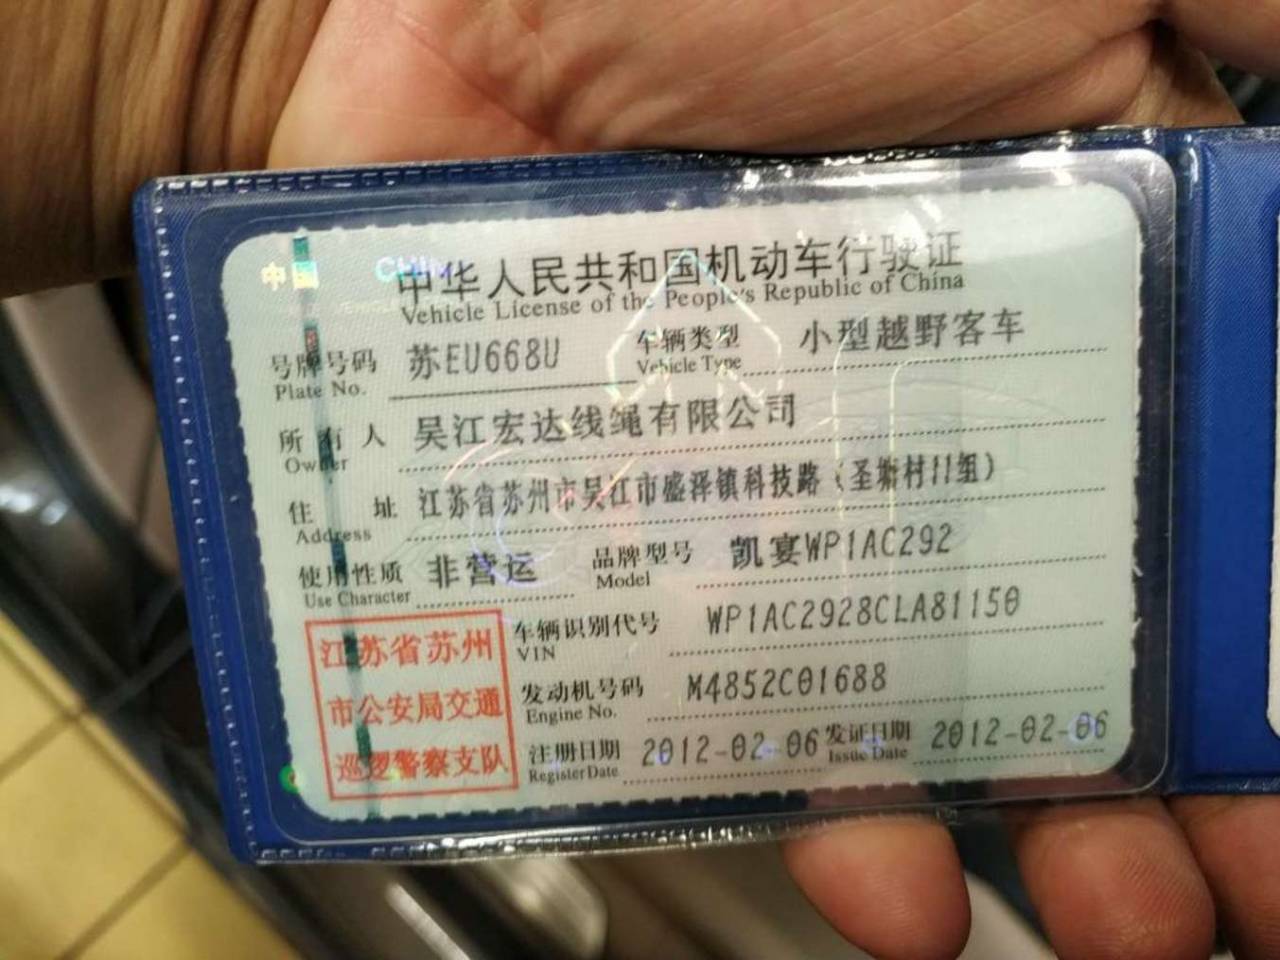 中国 CHINA
中华人民共和国机动车行驶证
Vehicle License of the People's Republic of China
号牌号码 苏EU668U 车辆类型 小型越野客车
Plate No. Vehicle Type
所有人 吴江宏达线绳有限公司
Owner
住址 江苏省苏州市吴江市盛泽镇科技路（圣塘村11组）
Address
使用性质 非营运 品牌型号 凯宴WP1AC292
Use Character Model
江苏省苏州
市公安局交通
巡逻警察支队
车辆识别代号 WP1AC2928CLA81150
VIN
发动机号码 M4852C01688
Engine No.
注册日期 2012-02-06 发证日期 2012-02-06
Register Date Issue Date